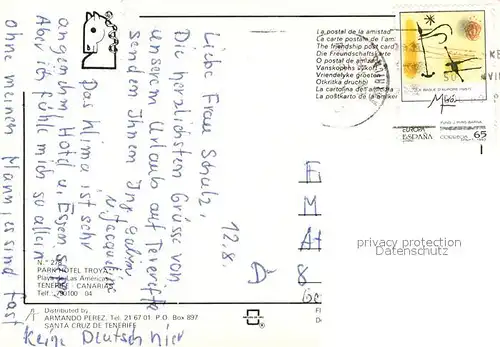 La postal de la amistad
La carte postale de l'am
The friendship post card
Die Freundschaftskarte
O postal de amizade
Vanskopens vykort
Vriendelyke groeten
Otkritka druchbi
La cartolina de l'amista
La postkarto de la amike
Miró
EUROPA
ESPAÑA
CORREOS 65
12.8.
Liebe Frau Schulz,
Die herzlichsten Grüsse von
unserem Urlaub auf Teneriffa
senden Ihnen
u. Jacqueline
Das Klima ist sehr
angenehm Hotel u. Essen
Aber ich fühle mich so allein
ohne meinen Mann, es sind fast
keine Deutsch hier
D
privacy protection
Datenschutz
PARK HOTEL TROYA
Playa de Las Américas
TENERIFE - CANARIAS
Distributed by
ARMANDO PEREZ. Tel. 21 67 01 P.O. Box 897
SANTA CRUZ DE TENERIFE